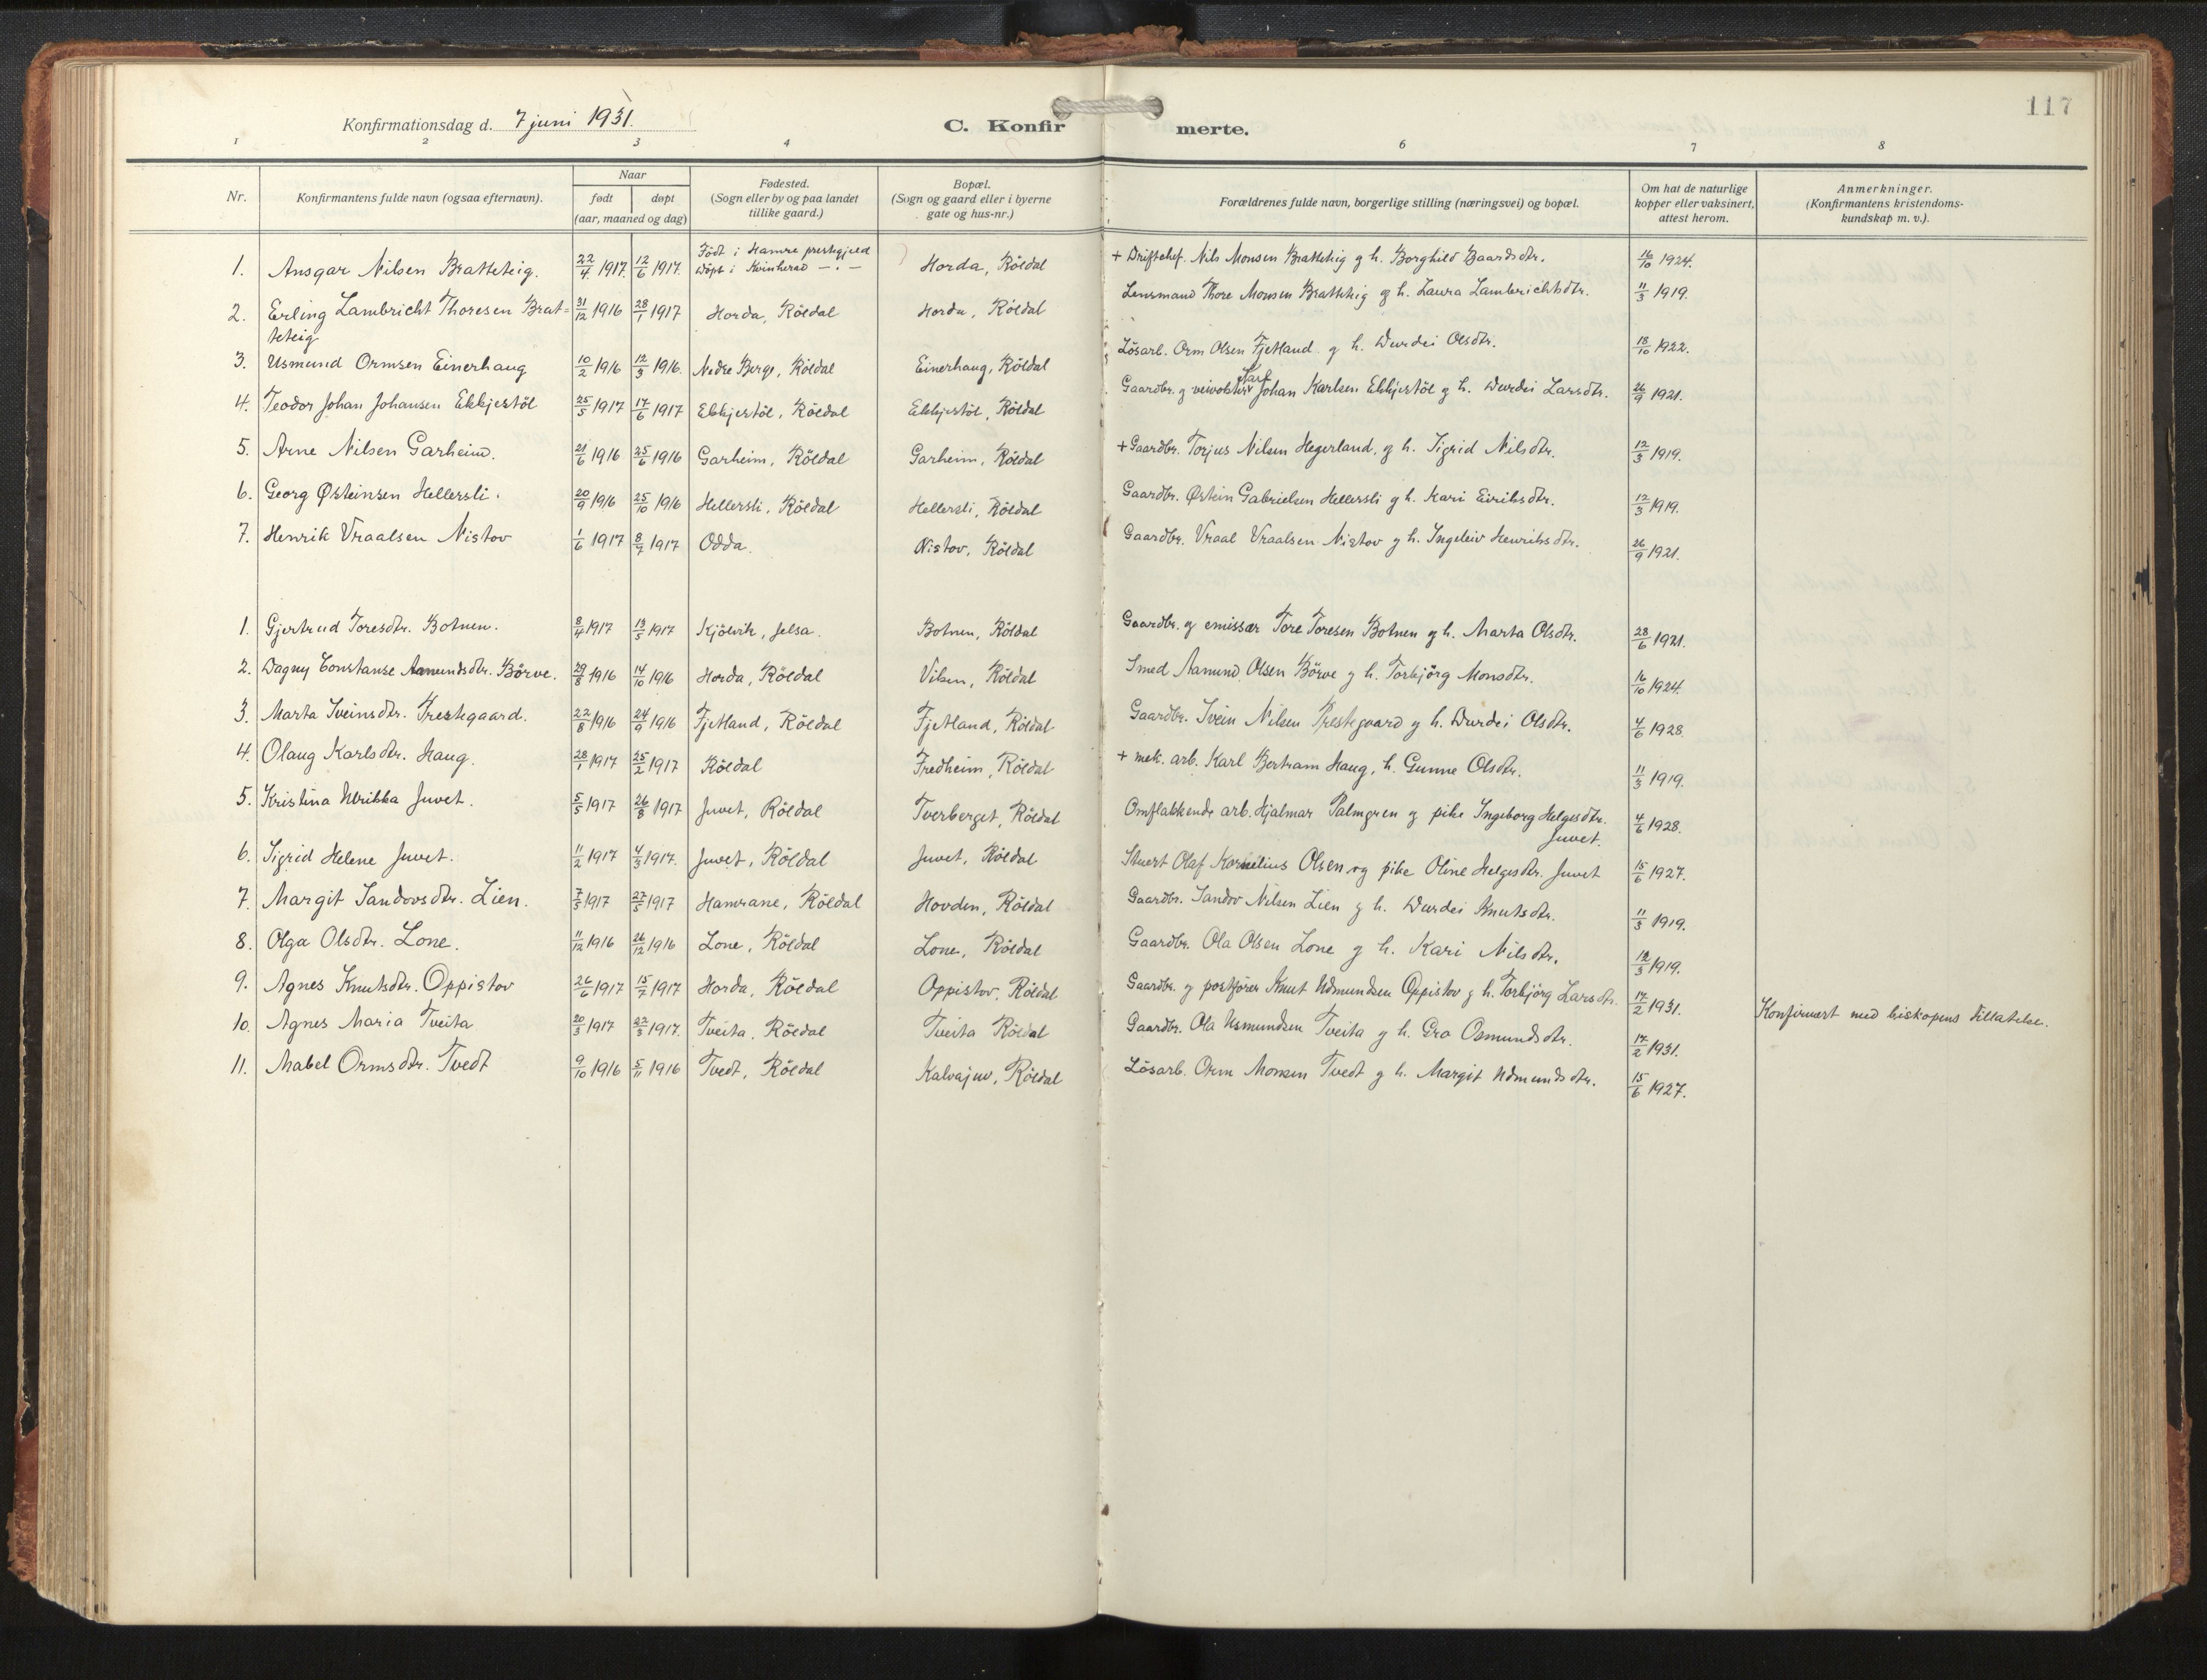 117
Konfirmationsdag d. 7 juni 1931.
C. Konfirmerte.
1 2 3 4 6 7 8
Nr.
Konfirmantens fulde navn (ogsaa efternavn).
Naar
født døpt
(aar, maaned og dag)
Fødested.
(Sogn eller by og paa landet
tillike gaard.)
Bopæl.
(Sogn og gaard eller i byerne
gate og hus-nr.)
Forældrenes fulde navn, borgerlige stilling (næringsvei) og bopæl.
Om hat de naturlige
kopper eller vaksinert,
attest herom.
Anmerkninger.
(Konfirmantens kristendoms-
kundskap m. v.).
1. Ansgar Nilsen Bratteteig. 22/4 1917. 12/6 1917. Födt i Hamre prestegjeld
Döpt i Kvinherad — " — Horda, Röldal + Driftchef. Nils Monsen Bratteteig og h. Borghild Baardsdtr. 16/10 1924.
2. Erling Lambricht Thoresen Brat= 31/12 1916 28/1 1917 Horda, Röldal Horda, Röldal Lensmand Thore Monsen Bratteteig og h. Laura Lambrichtsdtr. 11/3 1919.
teteig
3. Asmund Ormsen Einerhaug 10/2 1916 12/3 1916. Nedre Berge, Röldal Einerhaug, Röldal Lösarb. Orm Olsen Fjetland og h. Durdei Olsdtr. 18/10 1922.
4. Teodor Johan Johansen Ekkjestöl 25/5 1917 17/6 1917 Ekkjestöl, Röldal Ekkjestöl, Röldal Gaardbr. og veivokter Karl Johan Karlsen Ekkjestöl og h. Durdei Larsdtr. 26/9 1921.
5. Arne Nilsen Garheim. 21/6 1916 25/6 1916 Garheim, Röldal Garheim, Röldal + Gaardbr. Torjus Nilsen Hegerland, og h. Sigrid Nilsdtr. 12/3 1919.
6. Georg Østeinsen Hellersli. 20/9 1916 25/10 1916 Hellersli, Röldal Hellersli, Röldal Gaardbr. Østein Gabrielsen Hellersli og h. Kari Eiriksdtr. 12/3 1919.
7. Henrik Vraalsen Nistov 1/6 1917 8/7 1917 Odda. Nistov, Röldal Gaardbr. Vraal Vraalsen Nistov og h. Ingeleiv Henriksdtr. 26/9 1921.
1. Gjertrud Toresdtr. Botnen. 8/4 1917 13/5 1917 Kjölvik, Jelsa. Botnen, Röldal Gaardbr. og emissær Tore Toresen Botnen og h. Marta Olsdtr. 28/6 1921.
2. Dagny Constanse Aamundsdtr. Börve. 29/8 1916 14/10 1916 Horda, Röldal Viken, Röldal Smed Aamund Olsen Börve og h. Torbjörg Monsdtr. 16/10 1924.
3. Marta Sveinsdtr. Prestegaard. 22/8 1916 24/9 1916 Fjetland, Röldal Fjetland, Röldal Gaardbr. Svein Nilsen Prestegaard og h. Durdei Olsdtr. 4/6 1928.
4. Olaug Karlsdtr. Haug. 28/1 1917 25/2 1917 Röldal Fredheim, Röldal + mek. arb. Karl Bertram Haug, h. Gunne Olsdtr. 11/3 1919.
5. Kristina Ulrikka Juvet. 5/5 1917 26/8 1917 Juvet, Röldal Tverberget, Röldal Omflakkende arb. Hjalmar Palmgren og pike Ingeborg Helgesdtr. 4/6 1928.
Juvet.
6. Sigrid Helene Juvet. 11/2 1917 4/3 1917. Juvet, Röldal Juvet, Röldal Stuert Olaf Kornelius Olsen og pike Oline Helgesdtr. Juvet 15/6 1927.
7. Margit Sandovsdtr. Lien. 7/5 1917 27/5 1917 Hamrane, Röldal Hovden, Röldal Gaardbr. Sandov Nilsen Lien og h. Durdei Knutsdtr. 11/3 1919.
8. Olga Olsdtr. Lone. 11/12 1916 26/12 1916 Lone, Röldal Lone, Röldal Gaardbr. Ola Olsen Lone og h. Kari Nilsdtr. 12/3 1919.
9. Agnes Knutsdtr. Oppistov 26/6 1917 15/7 1917 Horda, Röldal Oppistov, Röldal Gaardbr. og postförer Knut Asmundsen Oppistov og h. Torbjörg Larsdtr. 17/2 1931. Konfirmert med biskopens tillatelse.
10. Agnes Maria Tveita 20/3 1917 22/3 1917. Tveita, Röldal Tveita Röldal Gaardbr. Ola Asmundsen Tveita og h. Gro Osmundsdtr. 17/2 1931.
11. Mabel Ormsdtr. Tvedt 9/10 1916 5/11 1916 Tvedt, Röldal Kalvajuv, Röldal Lösarb. Orm Monsen Tvedt og h. Margit Asmundsdtr. 15/6 1927.